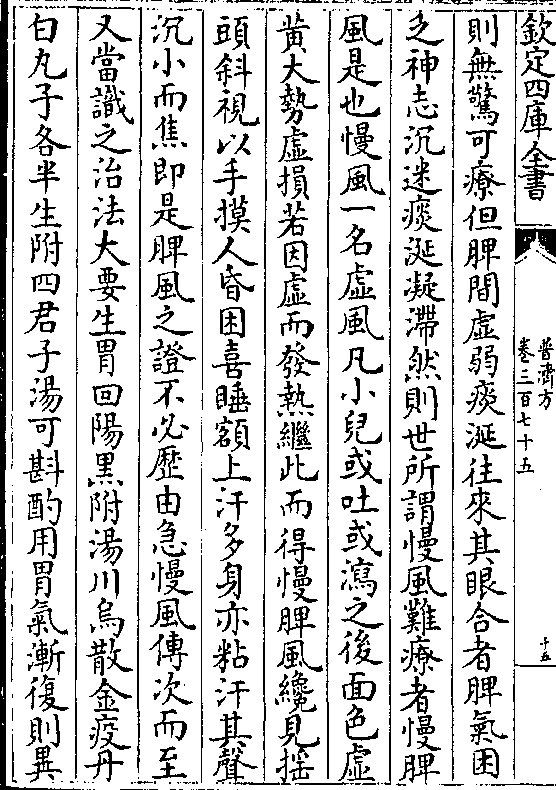 欽定四庫全書
普濟方
卷三百七十五
十五
則無驚可療但脾間虛弱痰涎往來其眼合者脾氣困
乏神志沉迷痰涎凝滯然則世所謂慢風難療者慢脾
風是也慢風一名虛風凡小兒或吐或瀉之後面色虛
黃大勢虛損若因虛而發熱繼此而得慢脾風纔見揺
頭斜視以手摸人昏困喜睡額上汗多身亦粘汗其聲
沉小而焦即是脾風之證不必歷由急慢風傳次而至
又當識之治法大要生胃回陽黑附湯川烏散金疫丹
白丸子各半生附四君子湯可斟酌用胃氣漸復則異